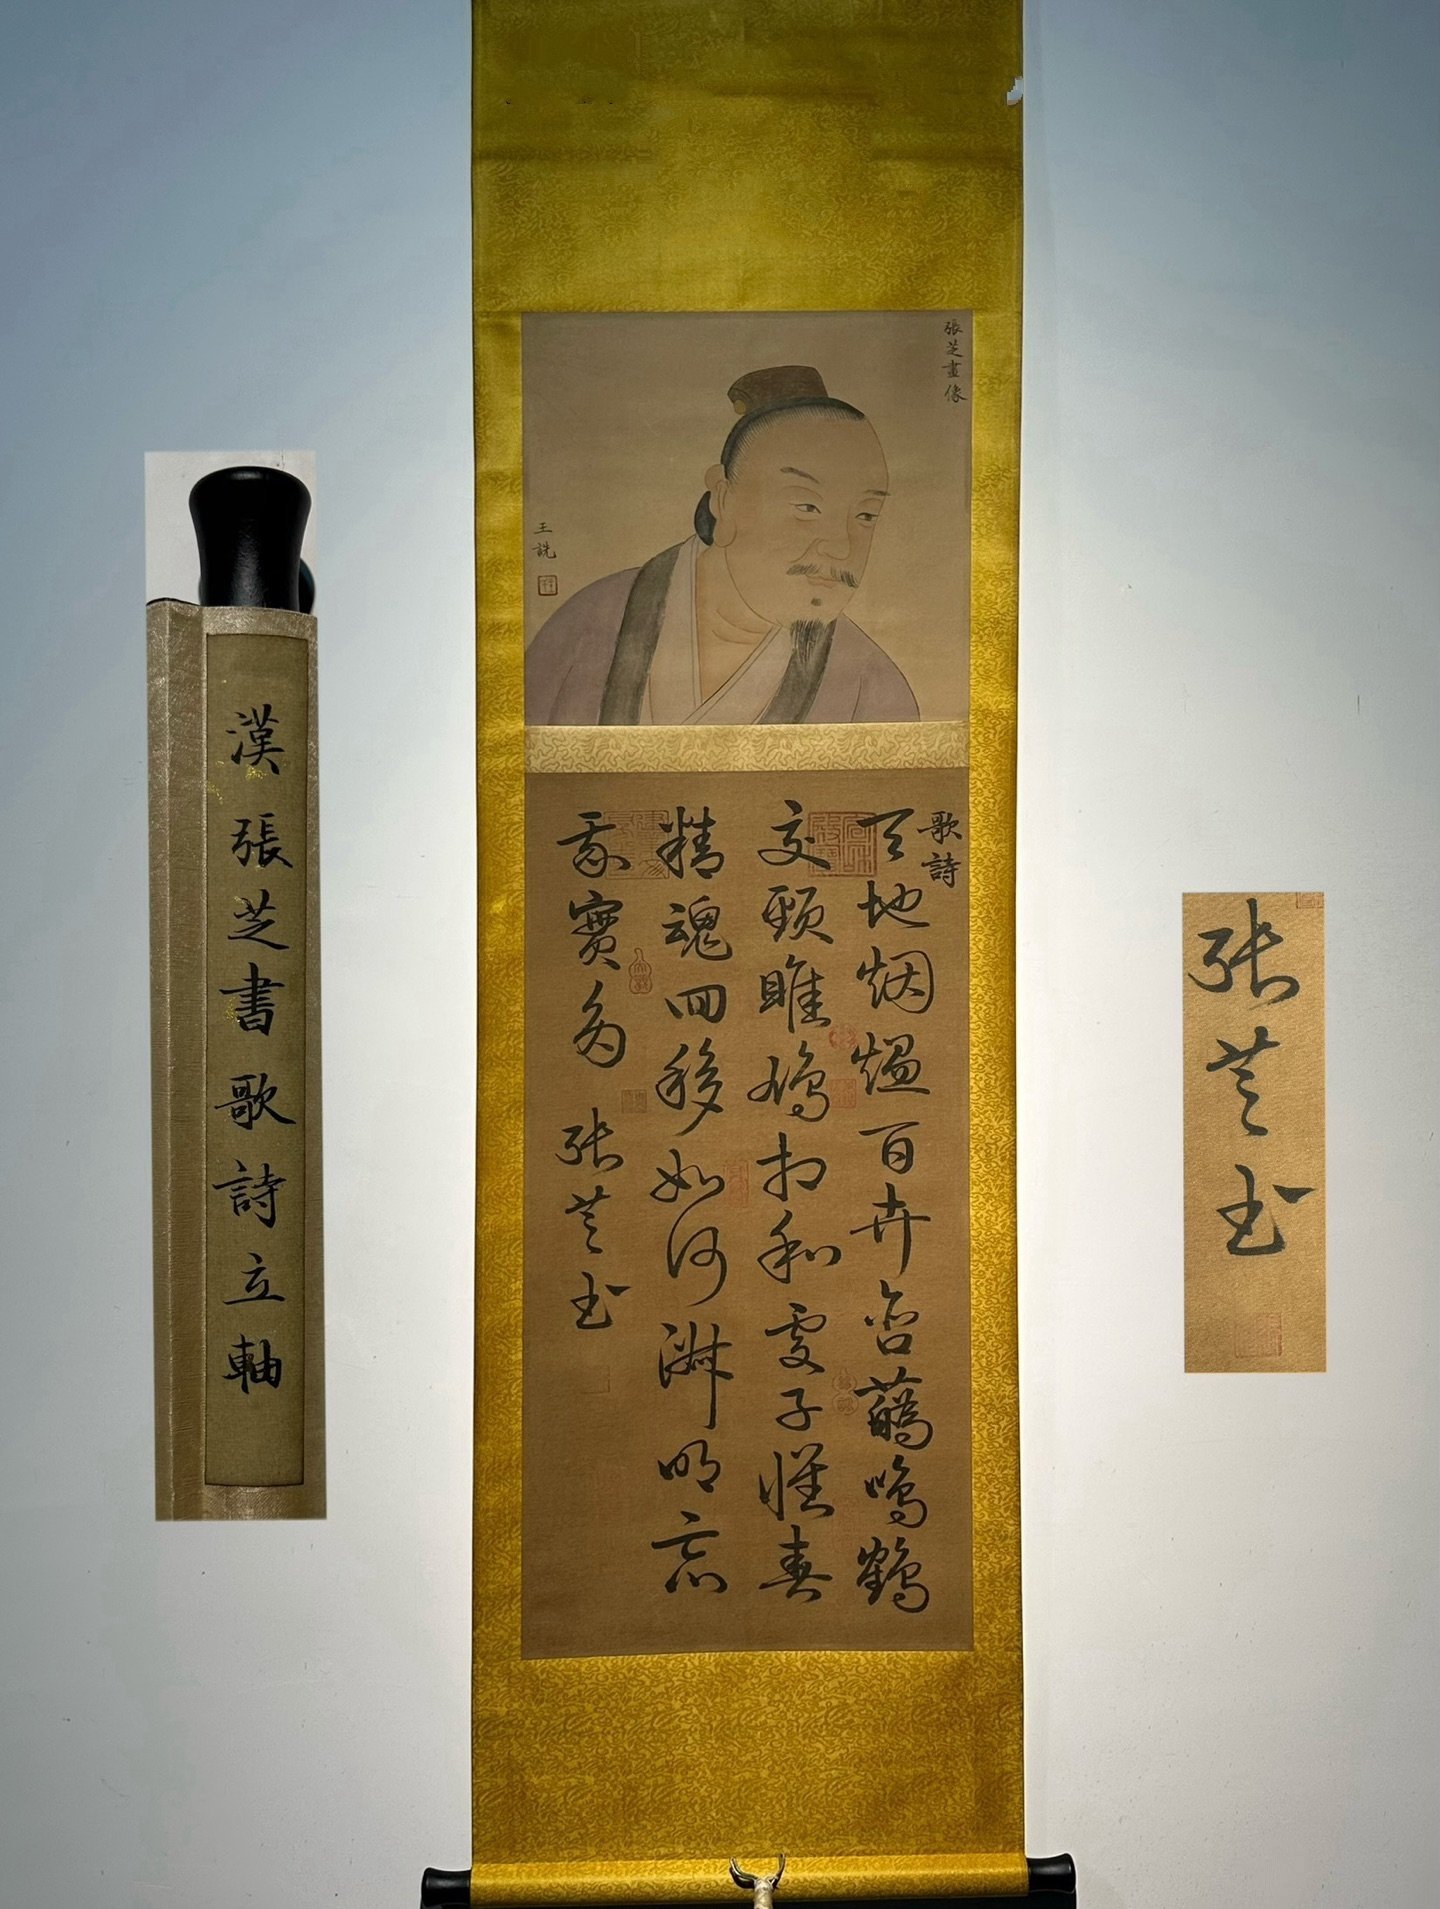 張芝畫像
王詵
歌詩
天地烟熅百卉含蘤鳴鶴
交頸雎鳩相和處子懷春
精魂回移如何淑明忘
我實多 張芝書
漢 張芝書 歌詩立軸
張芝書